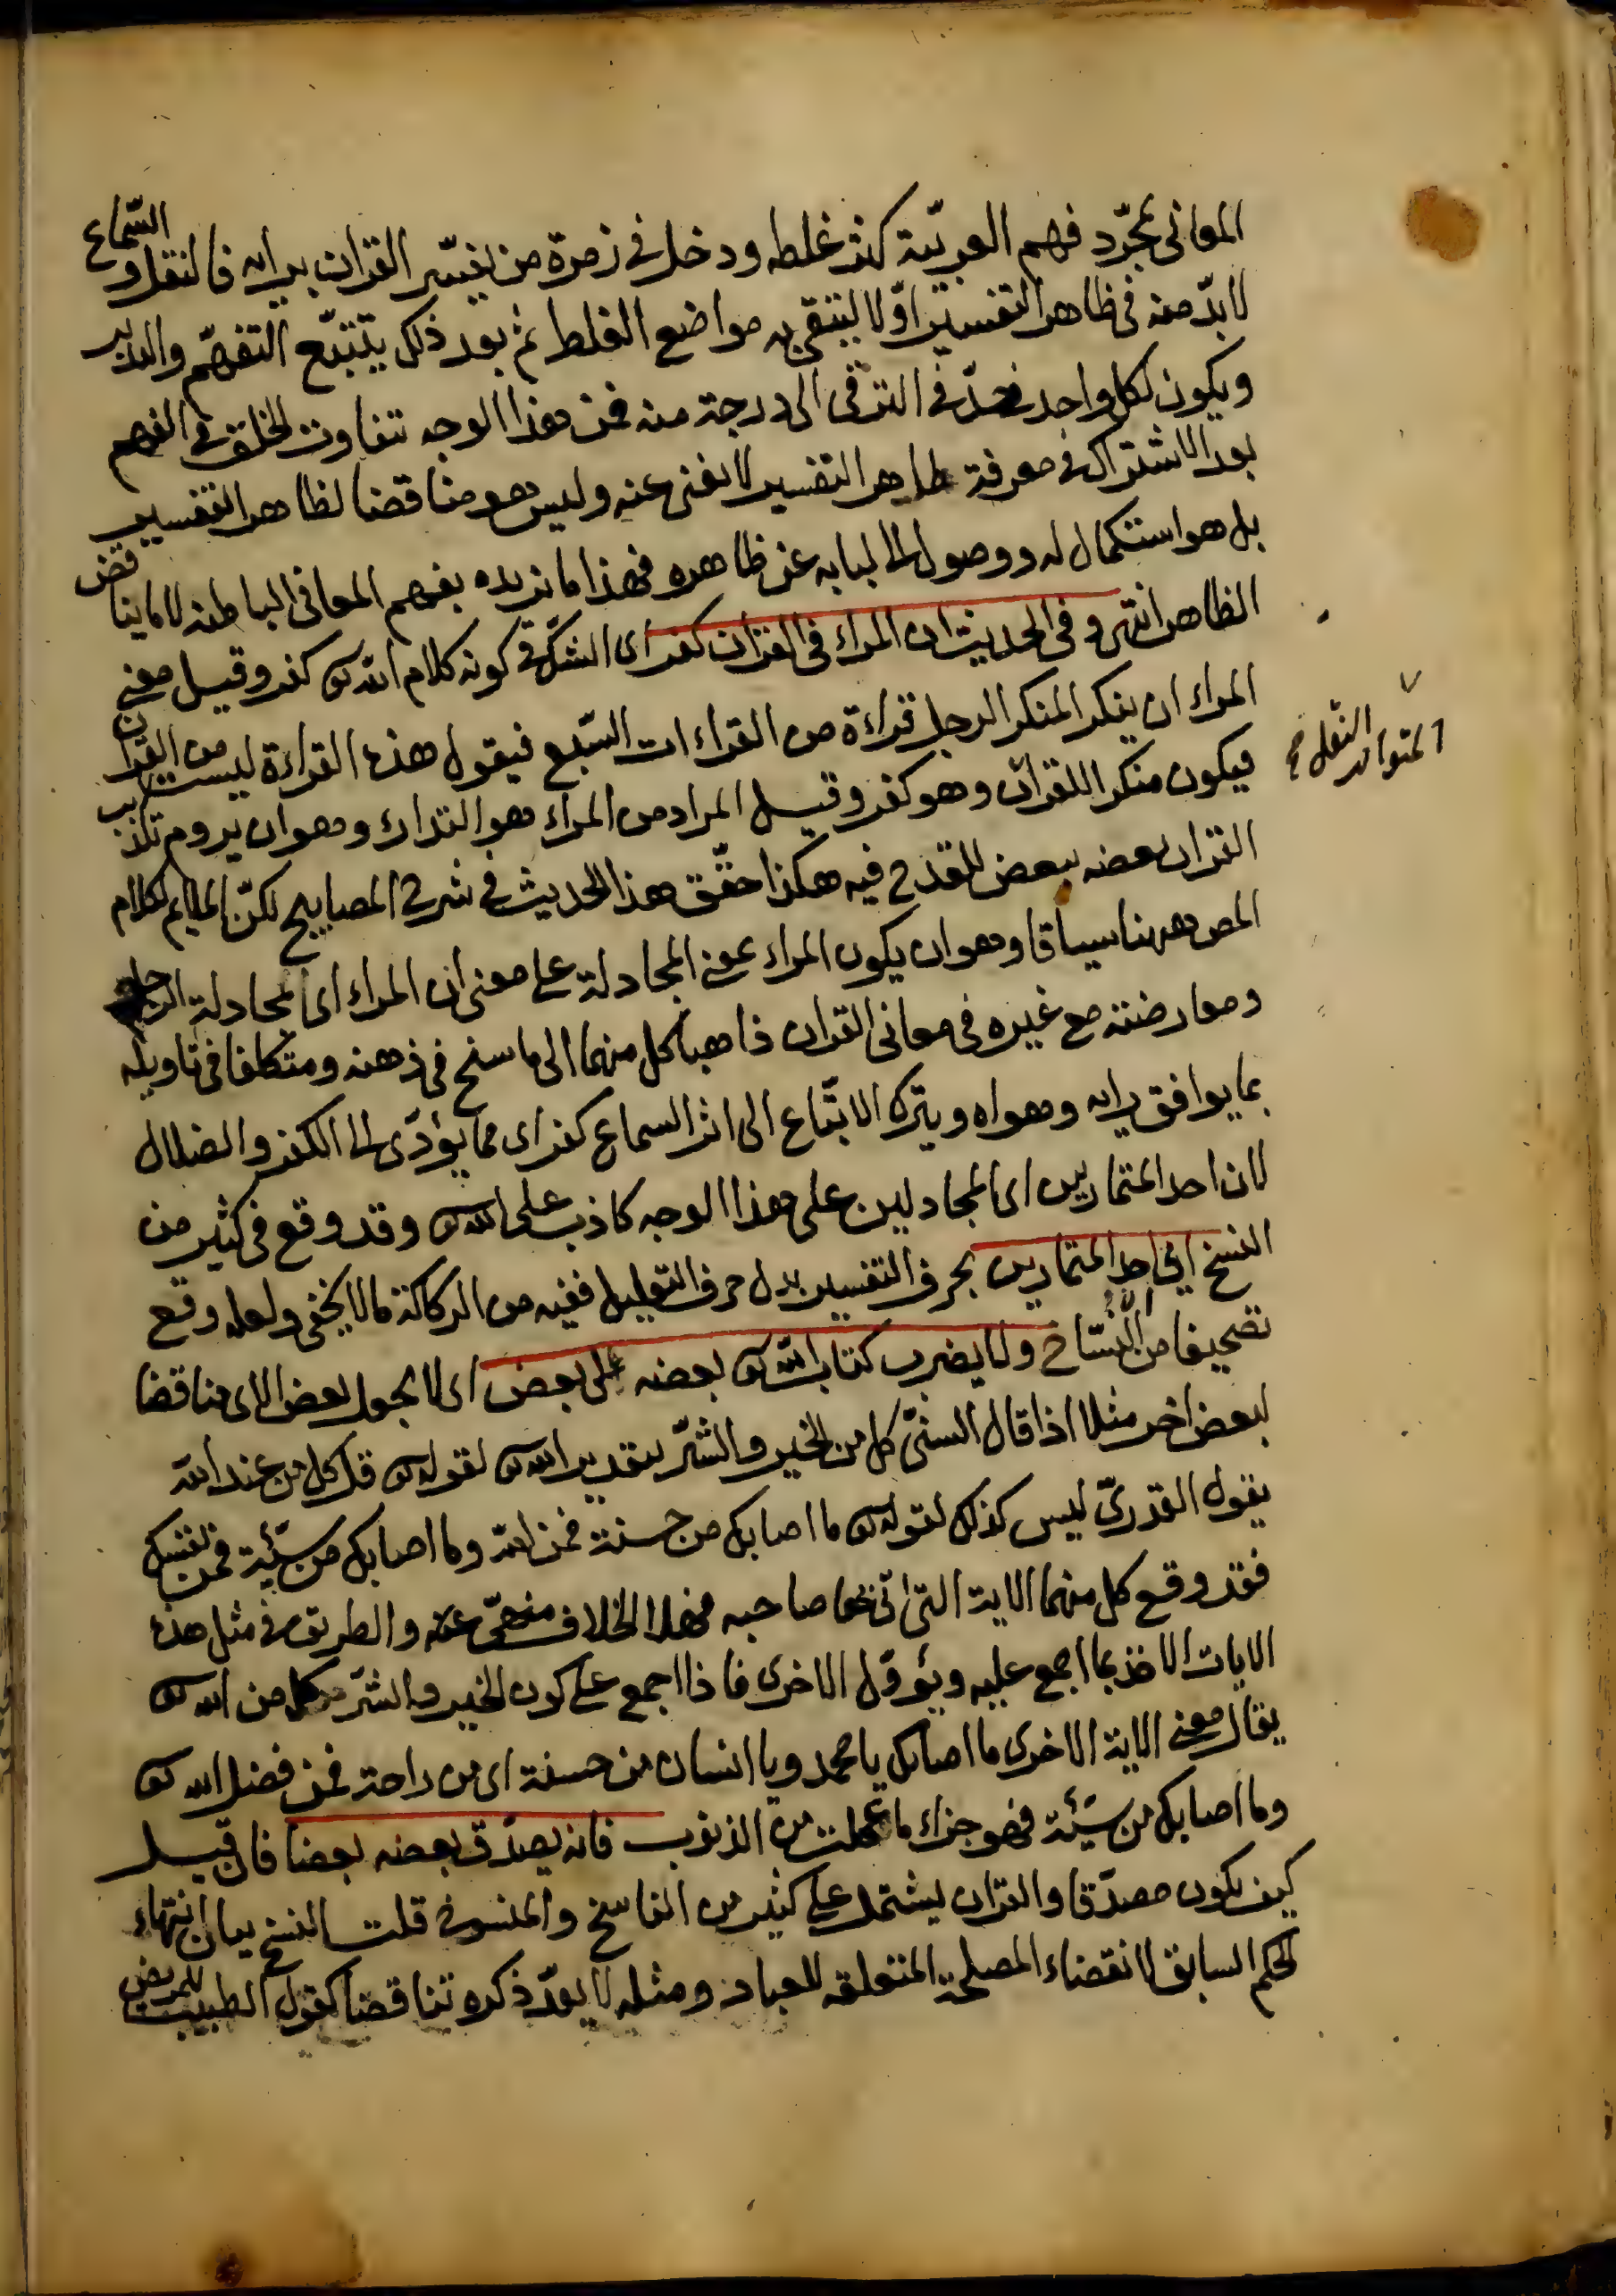 المعانى بمجرّد فهم العربيّة كثر غلطه ودخل فى زمرة من يفسّر القران برايه فالنقل والسّماع
لابدّ منه فى ظاهر التفسير اوّلا ليتقى به مواضع الغلط ثم بعد ذلك يتتبّع التفهّم والتدبر
ويكون لكل واحد حدّ فى الترقى الى درجة منه فمن هذا الوجه تتفاوت الخلق فى الفهم
بعد الاشتراك فى معرفة ظاهر التفسير لا يغنى عنه وليس هو مناقضا لظاهر التفسير
بل هو استكمال له ووصول الى لبابه عن ظاهره فهذا ما نريده بفهم المعانى الباطنه لا ما يناقض
الظاهر انتهى وفى الحديث ان المراء فى القران كفر اى الشكّ فى كونه كلام الله تع كفر وقيل معنى
المراء ان ينكر المنكر الرجل قراءة من القراءات السّبع فيقول هذه القراءة ليست من القران
فيكون منكرا للقرآن وهو كفر وقيل المراد من المراء هو التدارء وهو ان يروم تكذيب
القران بعضه ببعض للقدح فيه هكذا حقّق هذا الحديث فى شرح المصابيح لكنّ الملايم لكلام
المص ههنا سياقا وهو ان يكون المراء بمعنى المجادلة على معنى ان المراء اى المجادلة الرجل
ومعارضته مع غيره فى معانى القران ذاهبا كل منهما الى ما سنح فى ذهنه ومتكلفا فى تاويله
بما يوافق برايه وهواه ويترك الاتباع الى اثر السماع كفر اى مما يؤدّى الى الكفر والضلال
لان احد المتمارين اى المجادلين على هذا الوجه كاذب على الله تع وقد وقع فى كثير من
النسخ اى احد المتمارين بحرف التفسير بدل حرف التعليل ففيه من الركاكة ما لا يخفى ولعله وقع
تصحيفا من النسّاخ ولا يضرب كتاب الله تع بعضه على بعض اى لا يجعل بعض الاى مناقضا
لبعض اخر مثلا اذا قال السنىّ كل من الخير والشرّ بتقدير الله تع لقوله تع قل كل من عند الله
يقول القدرىّ ليس كذلك لقوله تع ما اصابك من حسنة فمن الله وما اصابك من سيّئة فمن نفسك
فقد وقع كل منهما الاية التى اتى بها صاحبه فهذا الخلاف منهىّ عنه والطريق فى مثل هذه
الايات الاخذ بما اجمع عليه ويؤوّل الاخرى فاذا اجمع على كون الخير والشرّ كل من الله تع
يقال معنى الاية الاخرى ما اصابك يا محمد ويا انسان من حسنة اى من راحة فمن فضل الله تع
وما اصابك من سيّئة فهو جزاء ما عملت من الذنوب فانه يصدّق بعضه بعضا فان قيل
كيف يكون مصدّقا والقران يشتمل على كثير من الناسخ والمنسوخ قلت النسخ بيان انتهاء
الحكم السابق لانقضاء المصلحة المتعلقه للعباد ومثله لا يعدّ ذكره تناقضا كقول الطبيب للمريض
المتواتر النقل صح